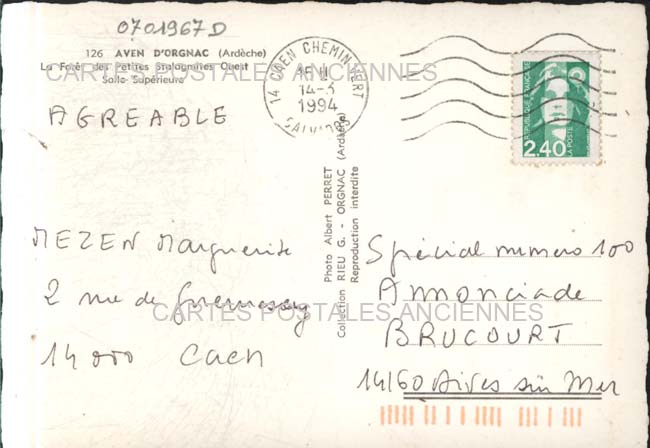 0701967D
126 AVEN D'ORGNAC (Ardèche)
La Forêt des Petites Stalagmites Ouest
Salle Supérieure
CARTES POSTALES ANCIENNES
14 CAEN CHEMIN VERT
14-3
1994
CALVADOS
REPUBLIQUE FRANCAISE
LA POSTE
2,40
AGREABLE
Photo Albert PERRET
Collection RIEU G. - ORGNAC (Ardèche)
Reproduction interdite
MEZEN Marguerite
2 rue de Guernesey
14000 Caen
Spécial numero 100
Annonciade
BRUCOURT
14160 Dives sur Mer
CARTES POSTALES ANCIENNES